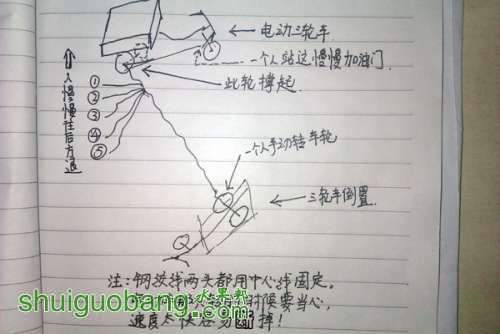 电动三轮车
一个人站这慢慢加油门
此轮撑起
人慢慢往后方退
①
②
③
④
⑤
一个人手动转车轮
三轮车倒置
注:钢绞线两头都用中心线固定。
时候要当心,
水果邦
shuiguobang.com
速度太快容易
摔!